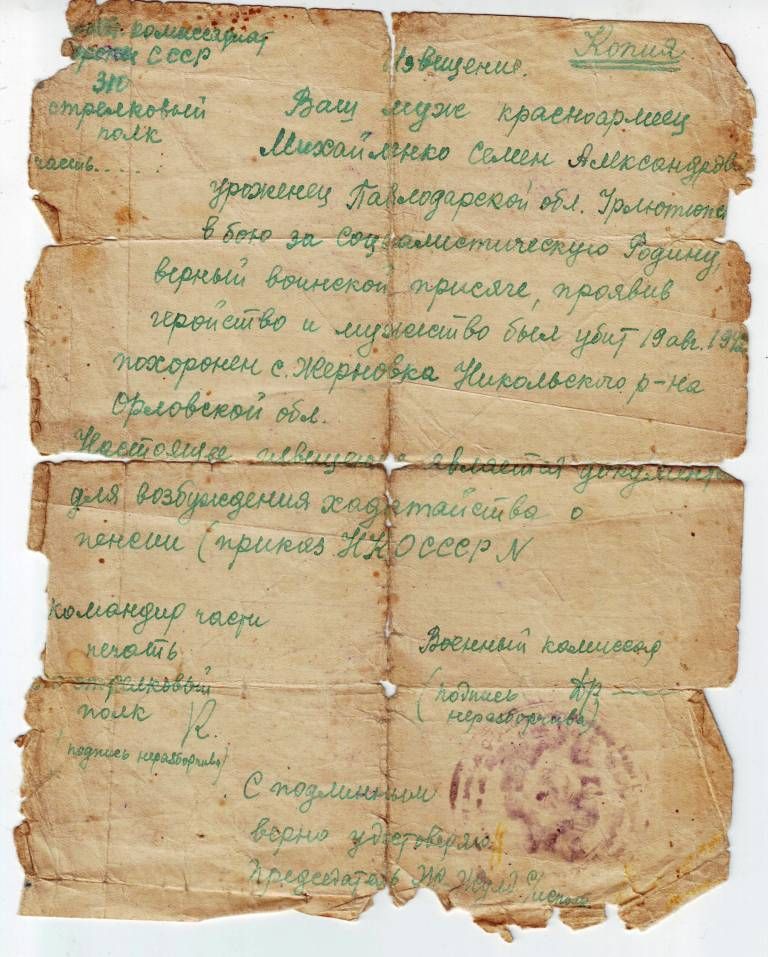 комиссариат
СССР
Копия
Извещение.
310
стрелковый
полк
часть.....
Ваш муж красноармеец
Михайленко Семен Александров
уроженец Павлодарской обл. Урлютюпс
в бою за Социалистическую Родину,
верный воинской присяге, проявив
геройство и мужество был убит 19 авг. 1942
похоронен с. Жерновка Никольского р-на
Орловской обл.
Настоящее извещение является документ
для возбуждения ходатайства о
пенсии (приказ НКО СССР N
Командир части
печать
стрелковый
полк
(подпись неразборчива)
Военный комиссар
(подпись
неразборчива)
С подлинным
верно удостоверяю
Председатель